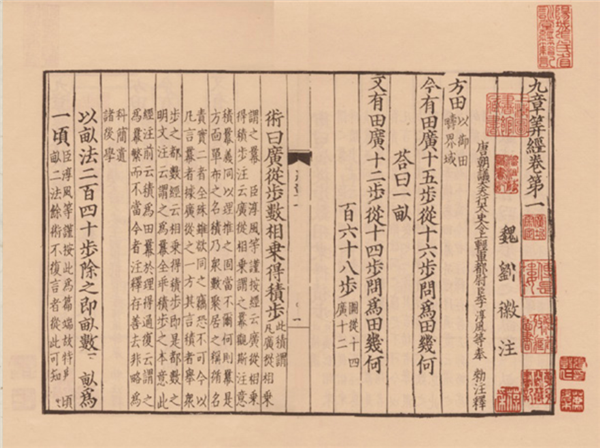 九章筭經卷第一
魏劉徽注
唐朝議大夫行太史令上輕車都尉臣李淳風等奉 勑注釋
方田以御田疇界域
今有田廣十五步從十六步問爲田幾何
荅曰一畝
又有田廣十二步從十四步問爲田幾何
百六十八步圖從十四廣十二
術曰廣從步數相乘得積步此積謂凡廣從相乘
謂之冪臣淳風等謹按經云廣從相乘
得積步注云廣從相乘謂之冪觀斯注意
積冪義同以理推之固當不爾何則冪是
方面單布之名積乃衆數聚居之稱循名
責實二者全殊雖欲同之竊恐不可今以
凡言冪者據廣從之一方其言積者舉衆
步之都數經云相乘得積步即是都數之
明文注云謂之爲冪全乖積步之本意此
經注前云積爲田冪於理得通復云謂之
爲冪繁而不當今者注釋存善去非略爲
科簡遺
諸後學
以畝法二百四十步除之即畝數畝爲
一頃臣淳風等謹按此爲篇端故特頃
畝二法餘術不復言者從此可知